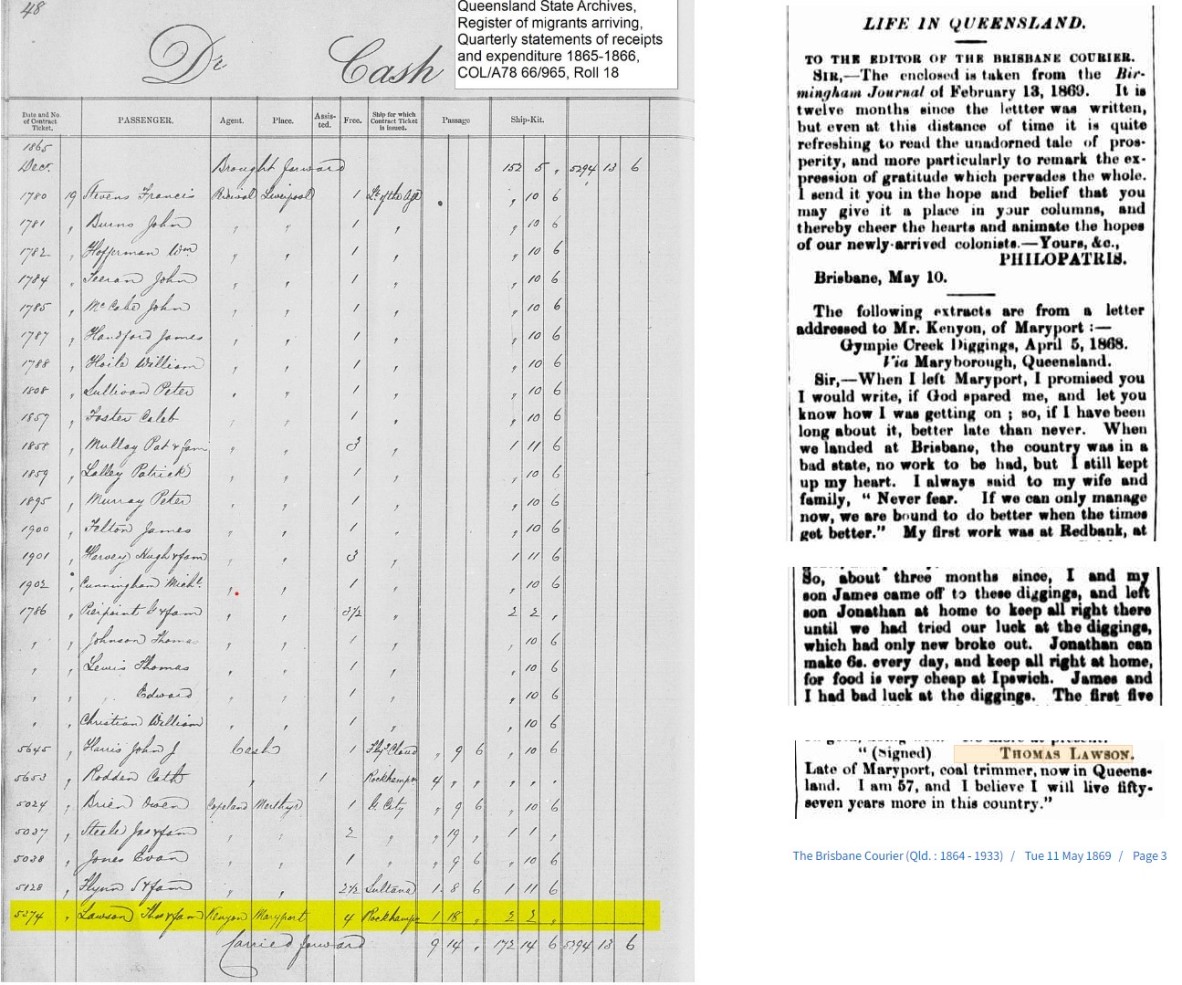 48
Queensland State Archives,
Register of migrants arriving,
Quarterly statements of receipts
and expenditure 1865-1866,
COL/A78 66/965, Roll 18
Dr Cash
Date and No. of Contract Ticket. PASSENGER. Agent. Place. Assisted. Free. Ship for which Contract Ticket is issued. Passage Ship-Kit.
1865
Decr. Brought forward 152 5 „ 5294 13 6
1780 19 Stevens Francis Liverpool 1 Lt of the Age „ 10 6
1781 „ Burns John „ „ 1 „ „ 10 6
1782 „ Hofferman Wm „ „ 1 „ „ 10 6
1784 „ Feeran John „ „ 1 „ „ 10 6
1785 „ McCabe John „ „ 1 „ „ 10 6
1787 „ Handford James „ „ 1 „ „ 10 6
1788 „ Haile William „ „ 1 „ „ 10 6
1808 „ Sullivan Peter „ „ 1 „ „ 10 6
1857 „ Foster Caleb „ „ 1 „ „ 10 6
1858 „ Mullay Pat & fam „ „ 3 „ 1 11 6
1859 „ Lalley Patrick „ „ 1 „ „ 10 6
1895 „ Murray Peter „ „ 1 „ „ 10 6
1900 „ Felton James „ „ 1 „ „ 10 6
1901 „ Harvey Hugh & fam „ „ 3 „ 1 11 6
1902 „ Cunningham Michl. „ „ 1 „ „ 10 6
1786 „ Peirpoint G & fam „ „ 3½ „ 2 2 „
„ „ Johnson Thomas „ „ 1 „ „ 10 6
„ „ Lewis Thomas „ „ 1 „ „ 10 6
„ „ „ Edward „ „ 1 „ „ 10 6
„ „ Christian William „ „ 1 „ „ 10 6
5645 „ Harris John J Cash 1 Flyg Cloud „ 9 6 „ 10 6
5653 „ Rodden Cath „ 1 Rockhampn 4 „ „ „ „ „
5024 „ Brien Owen Copeland Merthyr 1 G. City „ 9 6 „ 10 6
5027 „ Steele Jas & fam „ „ 2 „ „ 19 „ 1 1 „
5028 „ Jones Evan „ „ 1 „ „ 9 6 „ 10 6
5128 „ Flynn & fam „ „ 2½ Sultana 1 8 6 1 11 6
5274 „ Lawson Thos & fam Kenyon Maryport 4 Rockhampn 1 18 „ 2 2 „
Carried forward 9 14 „ 172 14 6 5294 13 6
LIFE IN QUEENSLAND.
TO THE EDITOR OF THE BRISBANE COURIER.
SIR,—The enclosed is taken from the Bir-
mingham Journal of February 13, 1869. It is
twelve months since the lettter was written,
but even at this distance of time it is quite
refreshing to read the unadorned tale of pros-
perity, and more particularly to remark the ex-
pression of gratitude which pervades the whole.
I send it you in the hope and belief that you
may give it a place in your columns, and
thereby cheer the hearts and animate the hopes
of our newly-arrived colonists.—Yours, &c.,
PHILOPATRIS.
Brisbane, May 10.
The following extracts are from a letter
addressed to Mr. Kenyon, of Maryport :—
Gympie Creek Diggings, April 5, 1868.
Via Maryborough, Queensland.
Sir,—When I left Maryport, I promised you
I would write, if God spared me, and let you
know how I was getting on ; so, if I have been
long about it, better late than never. When
we landed at Brisbane, the country was in a
bad state, no work to be had, but I still kept
up my heart. I always said to my wife and
family, “ Never fear. If we can only manage
now, we are bound to do better when the times
get better.” My first work was at Redbank, at
So, about three months since, I and my
son James came off to these diggings, and left
son Jonathan at home to keep all right there
until we had tried our luck at the diggings,
which had only new broke out. Jonathan can
make 6s. every day, and keep all right at home,
for food is very cheap at Ipswich. James and
I had bad luck at the diggings. The first five
“ (Signed) THOMAS LAWSON.
Late of Maryport, coal trimmer, now in Queens-
land. I am 57, and I believe I will live fifty-
seven years more in this country.”
The Brisbane Courier (Qld. : 1864 - 1933) / Tue 11 May 1869 / Page 3